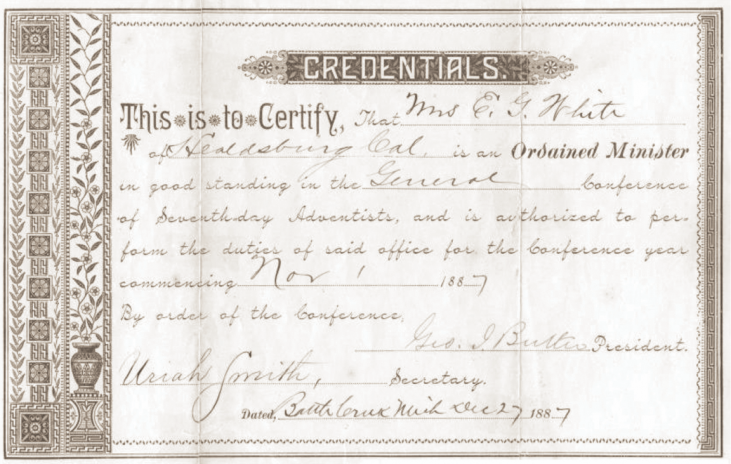 CREDENTIALS.
This is to Certify, That Mrs E. G. White
of Healdsburg Cal. is an Ordained Minister
in good standing in the General Conference
of Seventh-day Adventists, and is authorized to per-
form the duties of said office for the Conference year
commencing Nov 1 1887
By order of the Conference,
Geo. I. Butler President.
Uriah Smith, Secretary.
Dated, Battle Creek Mich Dec 27 1887